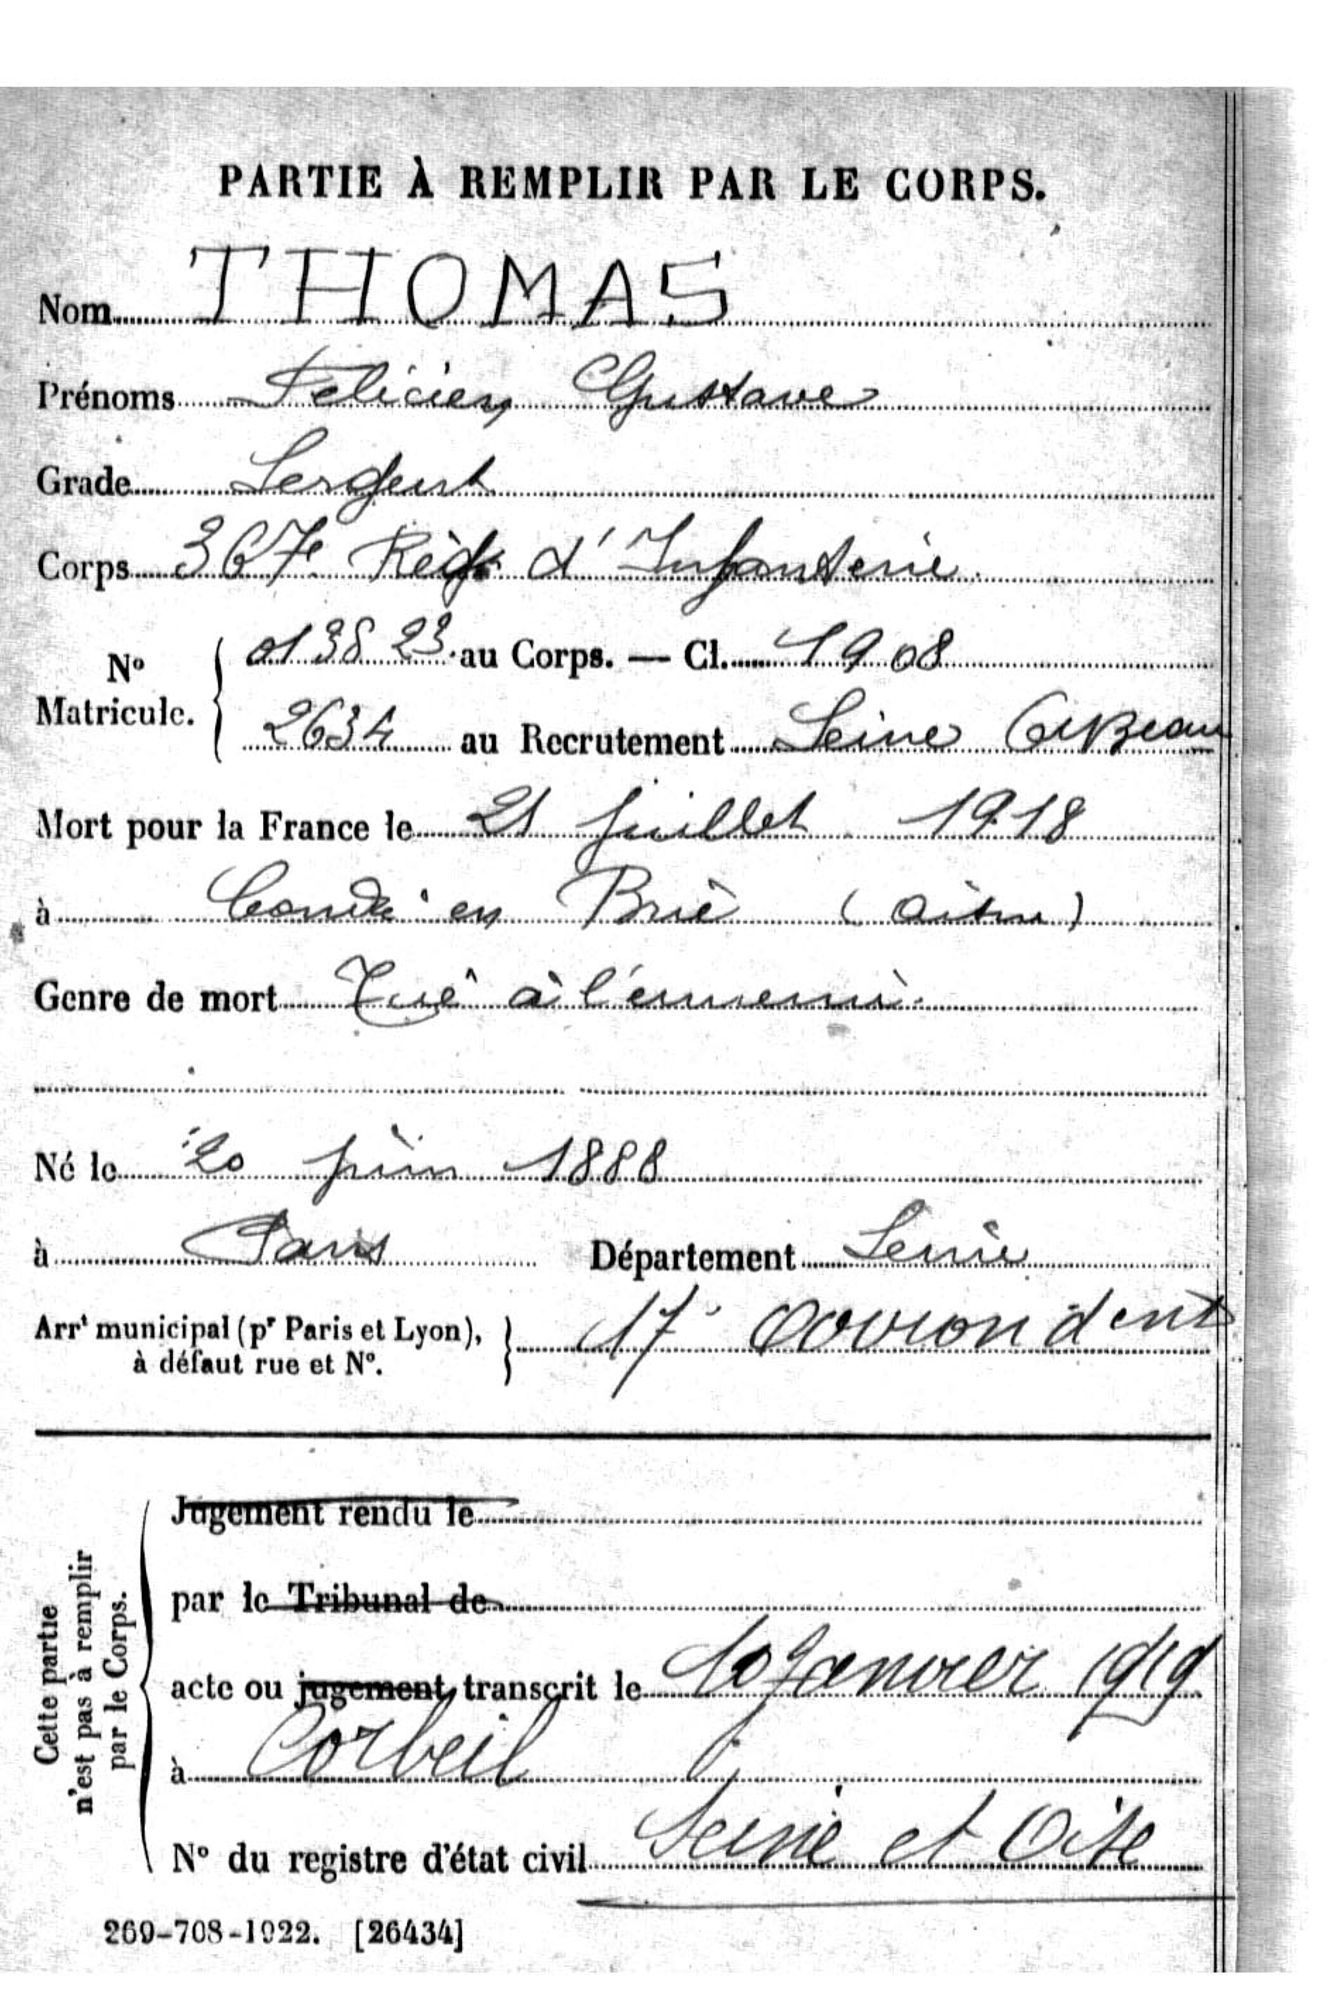 PARTIE À REMPLIR PAR LE CORPS.
Nom THOMAS
Prénoms Felicien Gustave
Grade Sergent
Corps 367e Règt d'Infanterie
No Matricule. 013823 au Corps. — Cl. 1908
2634 au Recrutement Seine
Mort pour la France le 21 juillet 1918
à Condé en Brie (Aisne)
Genre de mort Tué à l'ennemi
Né le 20 juin 1888
à Paris Département Seine
Arrt municipal (pr Paris et Lyon), à défaut rue et No. 17e
Cette partie n'est pas à remplir par le Corps.
Jugement rendu le
par le Tribunal de
acte ou jugement transcrit le 10 Janvier 1919
à Corbeil
No du registre d'état civil Seine et Oise
269-708-1922. [26434]